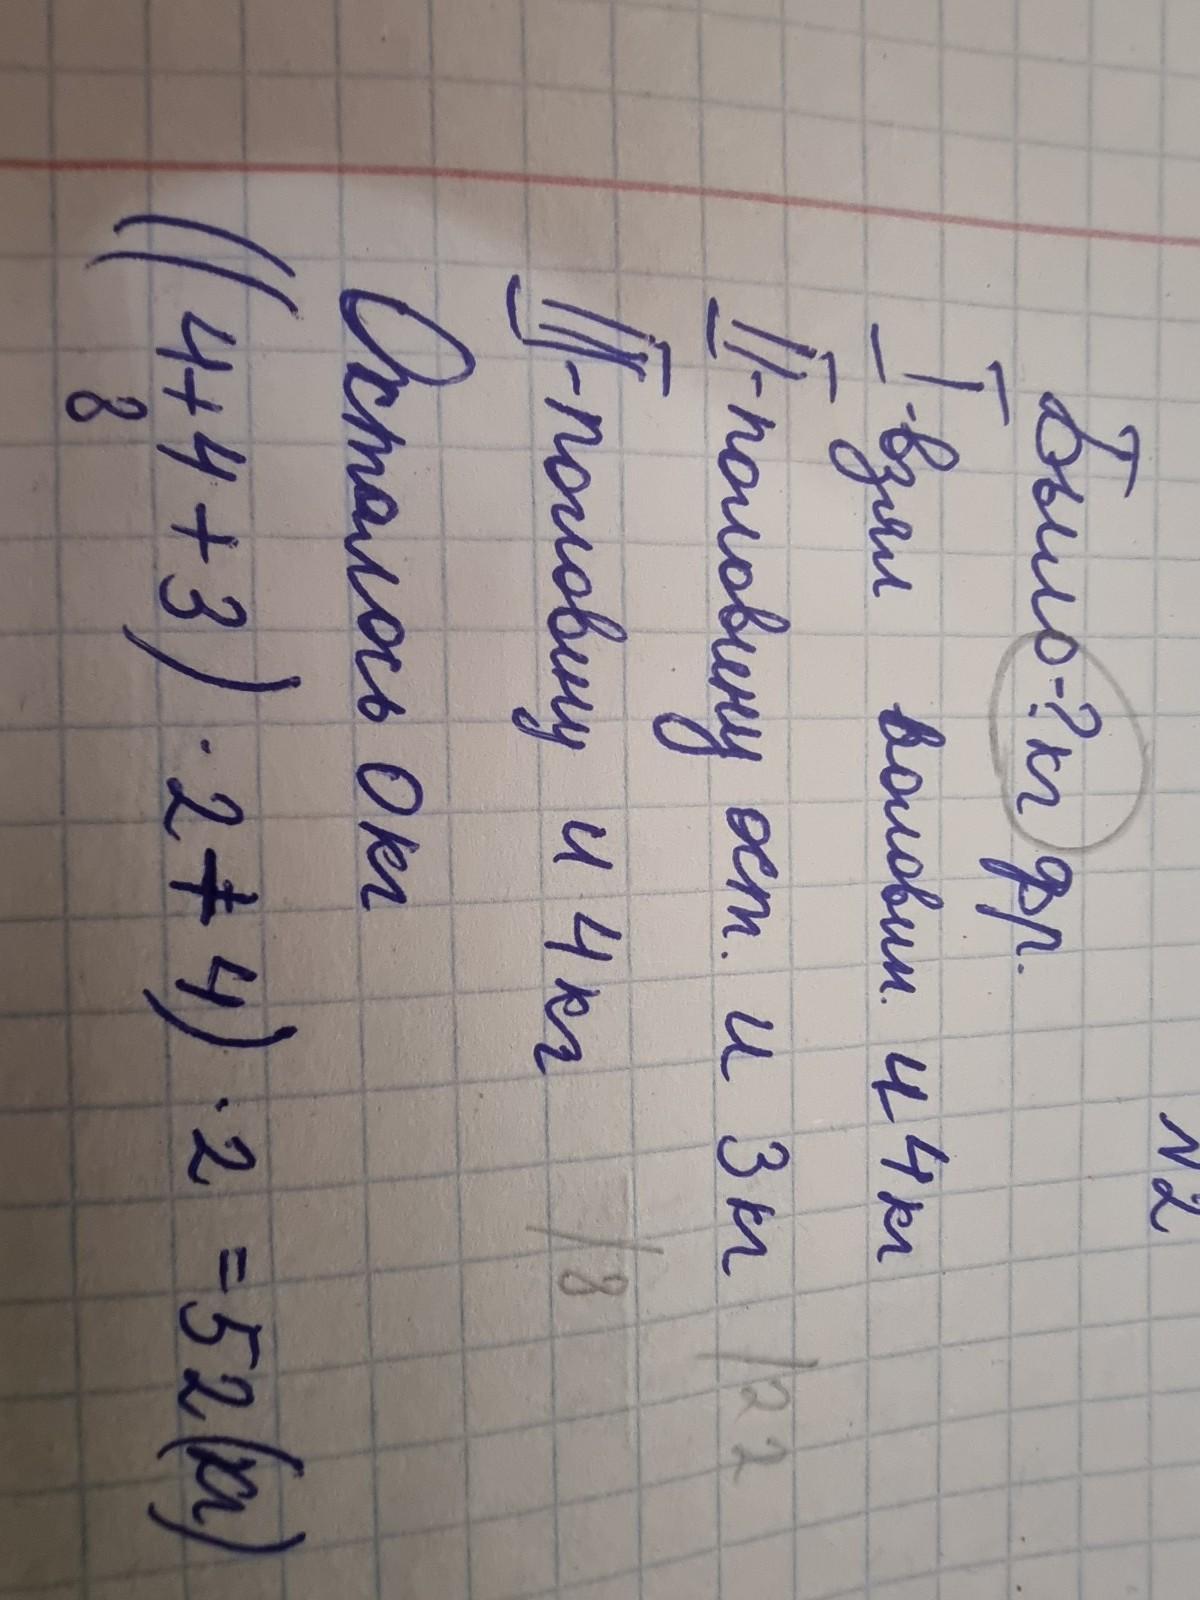 N2
Было-? кг фр.
I-взял половин. и 4 кг
II-половину ост. и 3 кг /22
III-половину и 4 кг /8
Осталось 0кг
((4+4+3)·2+4)·2=52(кг)
8